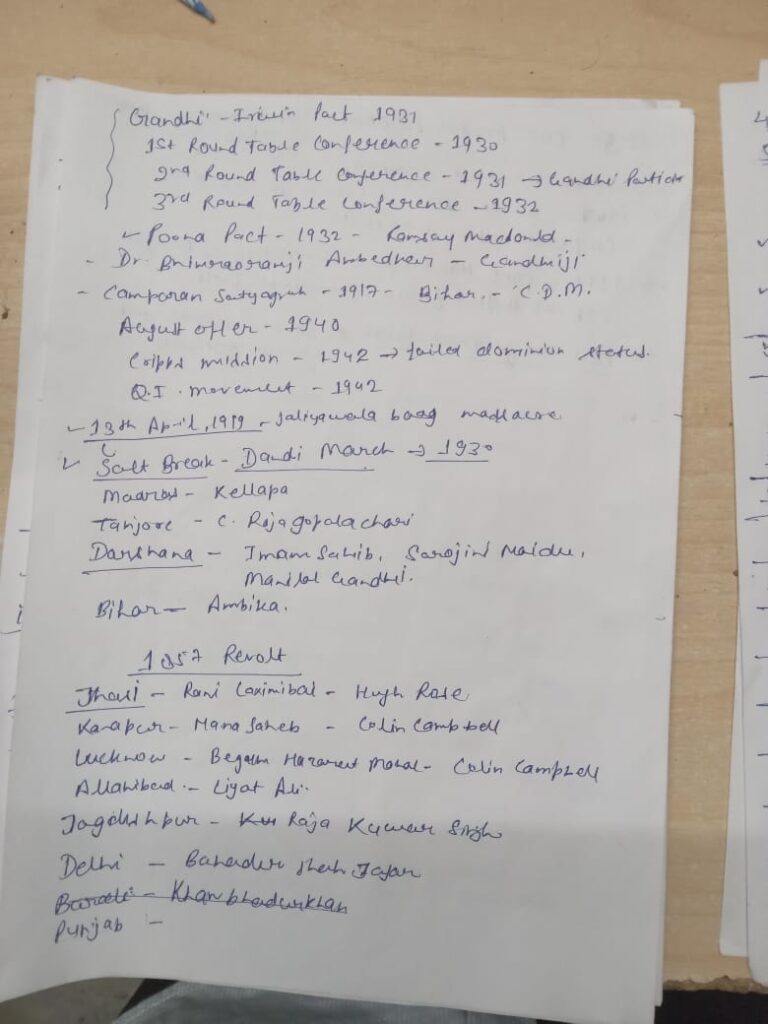 Gandhi - Irwin Pact 1931
1st Round Table Conference - 1930
2nd Round Table Conference - 1931 → Gandhi Partici
3rd Round Table Conference - 1932
✓ Poona Pact - 1932 - Ramsay Macdonald -
- Dr. Bhimraoramji Ambedkar - Gandhiji
- Camparan Satyagrah - 1917 - Bihar. - C.D.M.
August offer - 1940
Cripps mission - 1942 → failed dominion status.
Q.I. movement - 1942
✓ 13th April, 1919 - Jaliyawala baag massacre
✓ Salt Break - Dandi March → 1930
Madras - Kellapa
Tanjore - C. Rajagopalachari
Darshana - Imam Sahib, Sarojini Naidu,
Manilal Gandhi.
Bihar - Ambika.
1857 Revolt
Jhasi - Rani Laximibai - Hugh Rose
Kanpur - Nana Saheb - Colin Campbell
Lucknow - Begam Hazarat Mahal - Colin Campbell
Allahibad - Liyat Ali.
Jagdishpur - Raja Kuwar Singh
Delhi - Bahadur Shah Jafar
Bareli - Khan bhadurkhan
Punjab -
4